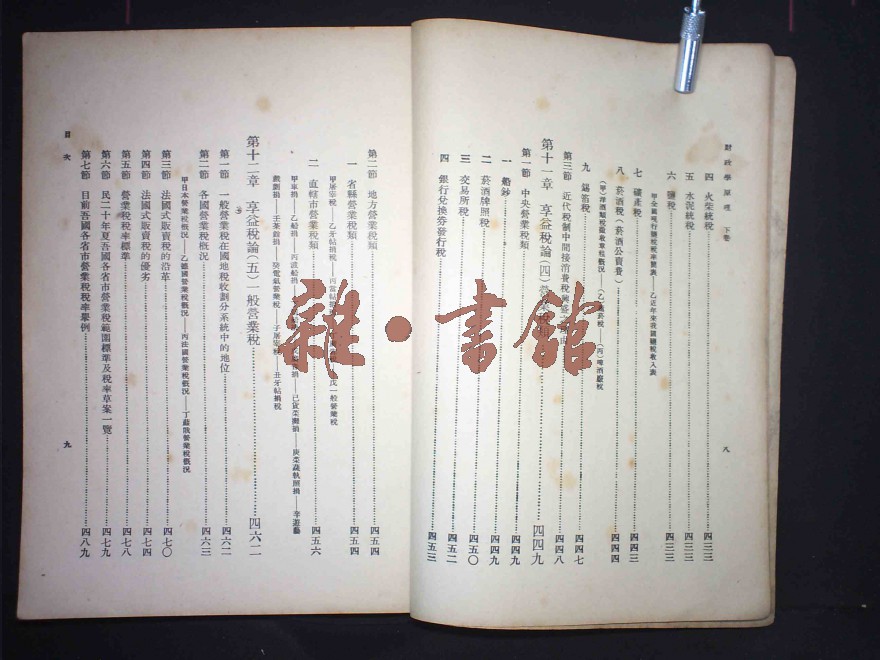 財政學原理 下卷
八
四 火柴統稅 四三三
五 水泥統稅 四三三
六 鹽稅 四三三
甲全國現行鹽稅稅率覽表——乙近年來我國鹽稅收入表
七 礦產稅 四四三
八 菸酒稅（菸酒公賣費） 四四四
九 錫箔稅 四四七
第三節 近代稅制中間接消費稅 四四八
第十一章 享益稅論（四）營業 四四九
第一節 中央營業稅類 四四九
一 船鈔 四四九
二 菸酒牌照稅 四四九
三 交易所稅 四五〇
四 銀行兌換券發行稅 四五二
四五三
第二節 地方營業稅類 四五四
一 省縣營業稅類 四五四
甲屠宰稅——乙牙帖捐稅——丙當帖捐 戊一般營業稅
二 直轄市營業稅類 四五六
甲車捐——乙船捐——丙渡船捐 庚菜蔬執照捐——辛遊藝
戲劇捐——壬茶館捐——癸電氣營業稅——子屠宰稅——丑牙帖捐稅
第十二章 享益稅論（五）一般營業稅 四六二
第一節 一般營業稅在國地稅收劃分系統中的地位 四六二
第二節 各國營業稅概況 四六三
甲日本營業稅概況——乙德國營業稅概況——丙法國營業稅概況——丁蘇俄營業稅概況
第三節 法國式販賣稅的沿革 四七〇
第四節 法國式販賣稅的優劣 四七四
第五節 營業稅稅率標準 四七八
第六節 民二十年夏吾國各省市營業稅範圍標準及稅率草案一覽 四七九
第七節 目前吾國各省市營業稅稅率舉例 四八九
目次
九
雜·書館